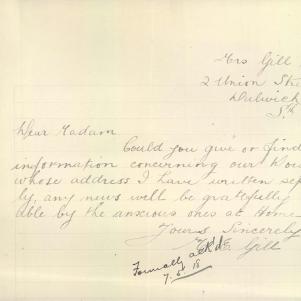 Mrs Gill
2 Union Stre
Dulwich
Sth
Dear Madam
Could you give or find
information concerning our
whose address I have written sep
ly, any news will be gratefully
able by the anxious ones at Home
Yours Sincerely
Gill
Formally ackd
7.5.18